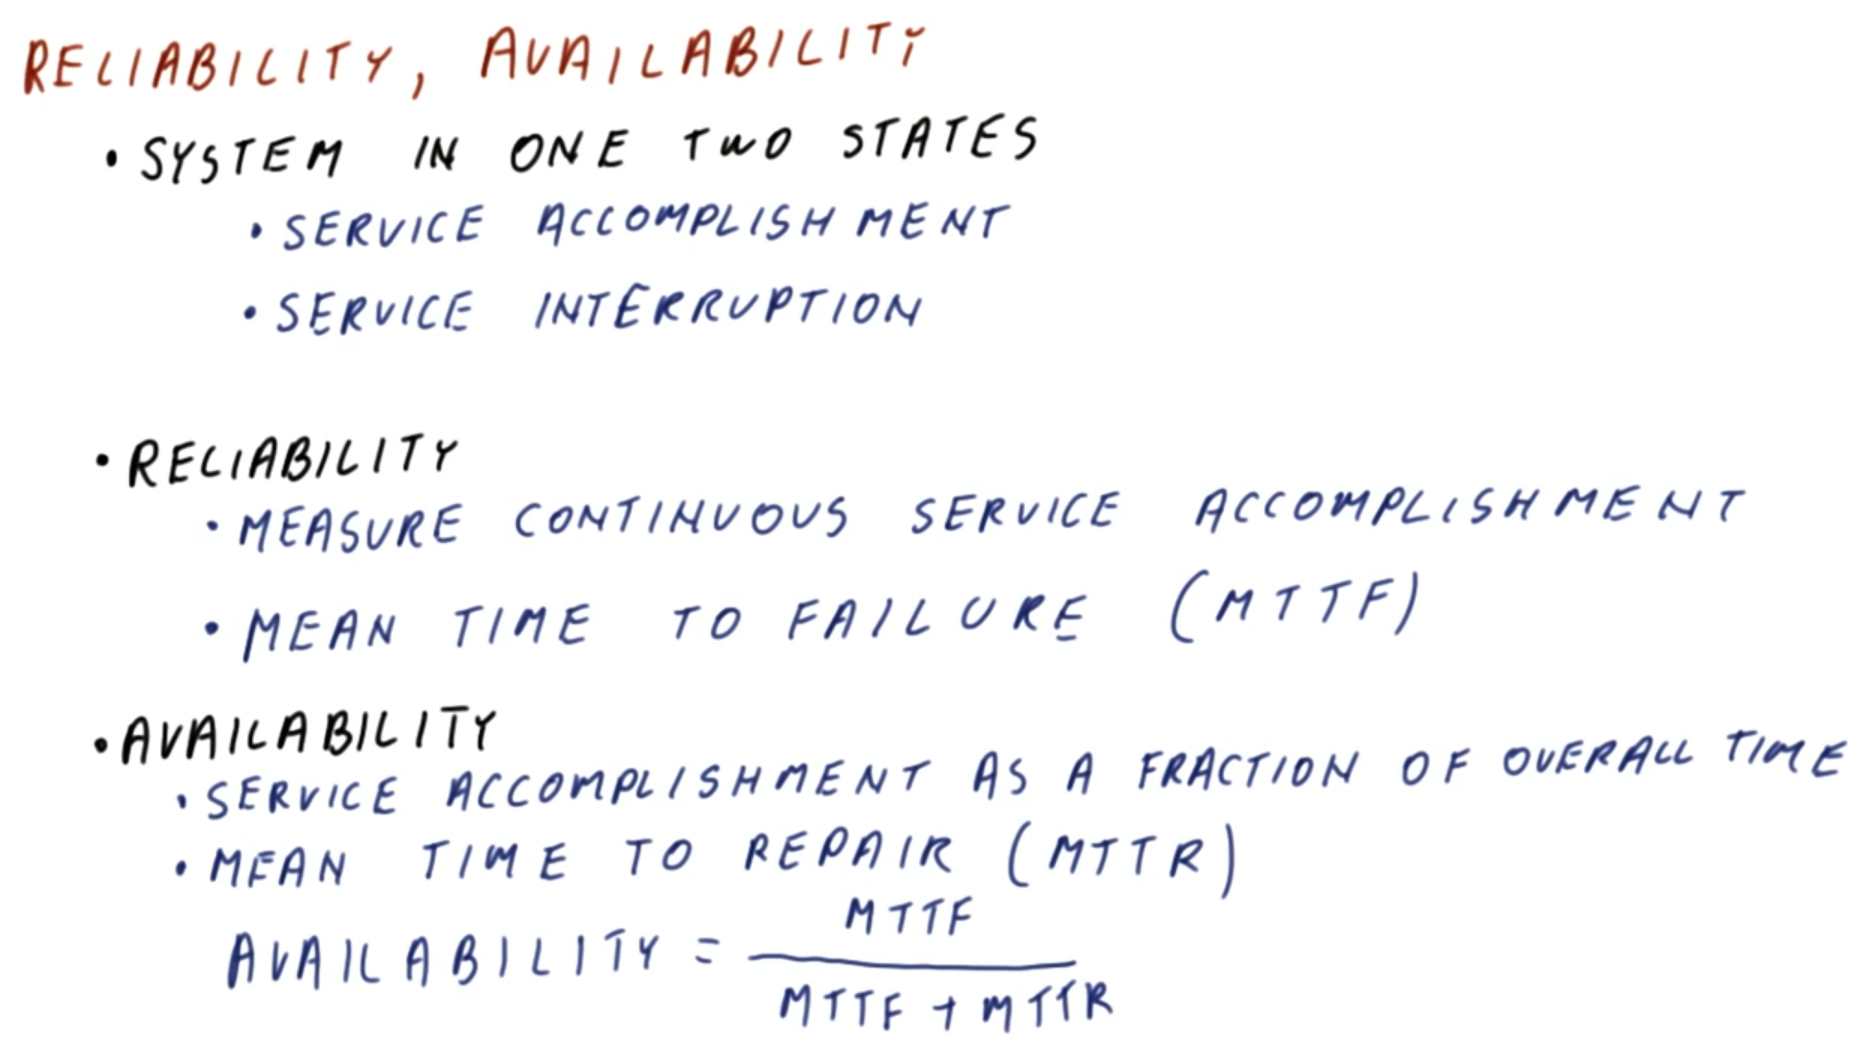 RELIABILITY, AVAILABILITY
• SYSTEM IN ONE TWO STATES
• SERVICE ACCOMPLISHMENT
• SERVICE INTERRUPTION
• RELIABILITY
• MEASURE CONTINUOUS SERVICE ACCOMPLISHMENT
• MEAN TIME TO FAILURE (MTTF)
• AVAILABILITY
• SERVICE ACCOMPLISHMENT AS A FRACTION OF OVERALL TIME
• MEAN TIME TO REPAIR (MTTR)
MTTF
AVAILABILITY =
MTTF + MTTR